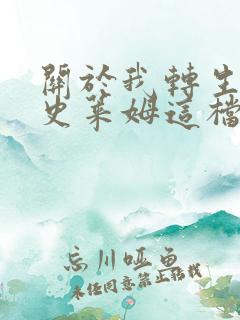 關於我轉生
史萊姆這檔
忘川啞魚
未经同意禁止转载